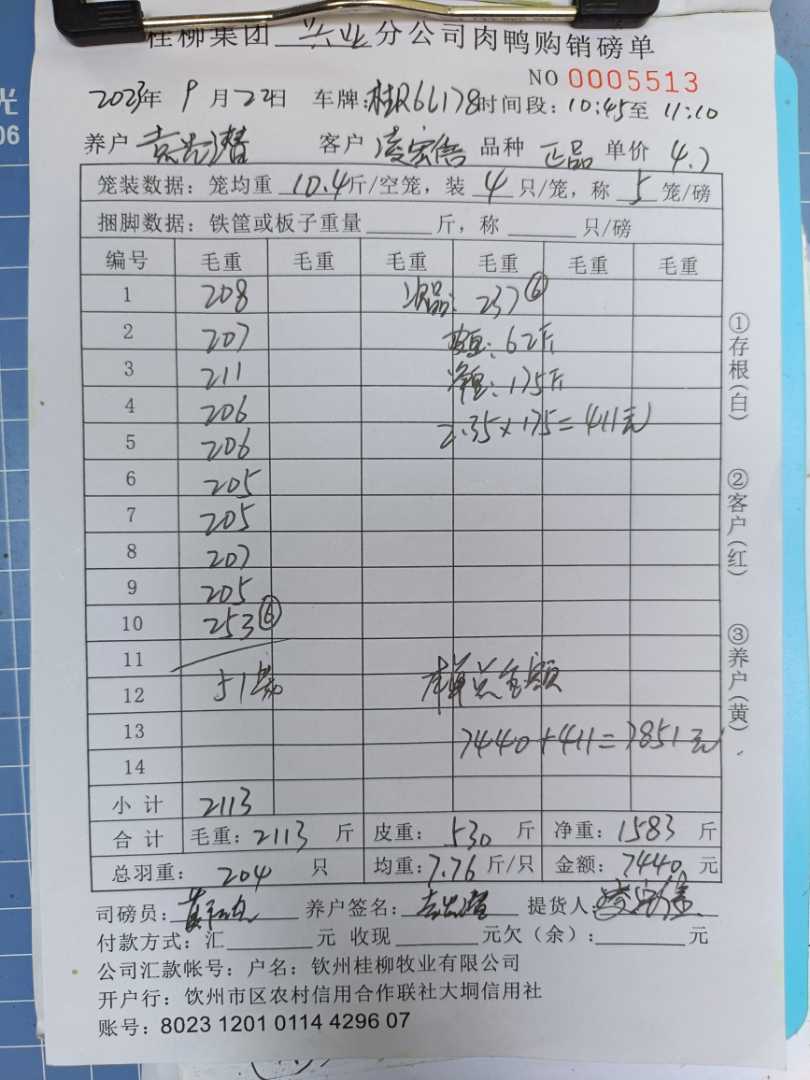 桂柳集团 兴业 分公司肉鸭购销磅单
NO 0005513
2023年 9月22日 车牌:桂R6L178 时间段:10:45至 11:10
养户 客户 品种 正品 单价 4.7
笼装数据:笼均重 10.4斤/空笼,装 4 只/笼,称 5 笼/磅
捆脚数据:铁筐或板子重量 斤,称 只/磅
编号 毛重 毛重 毛重 毛重 毛重 毛重
1 208 次品:237⑥
2 207 皮重:62斤
3 211 净重:175斤
4 206
5 206 2.35×175=411元
6 205
7 205
8 207
9 205
10 253⑥
11
12 51笼 本单总金额
13 7440+411=7851元
14
小计 2113
合计 毛重:2113 斤 皮重:530 斤 净重:1583 斤
总羽重:204 只 均重:7.76 斤/只 金额:7440 元
司磅员: 养户签名: 提货人:
付款方式:汇 元 收现 元欠(余): 元
公司汇款帐号:户名:钦州桂柳牧业有限公司
开户行:钦州市区农村信用合作联社大垌信用社
账号:8023 1201 0114 4296 07
①存根(白)
②客户(红)
③养户(黄)
光
06